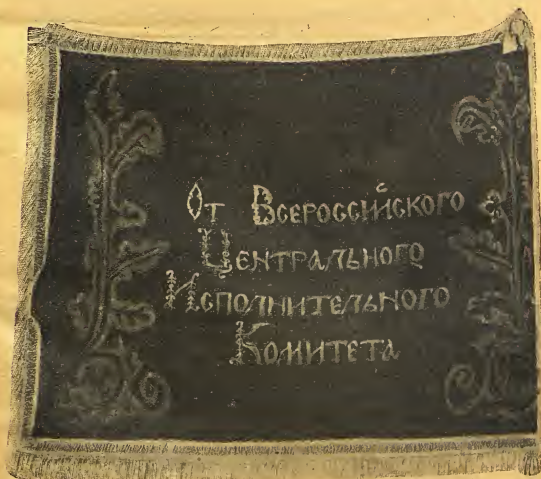 От Всероссийского
Центрального
Исполнительного
Комитета